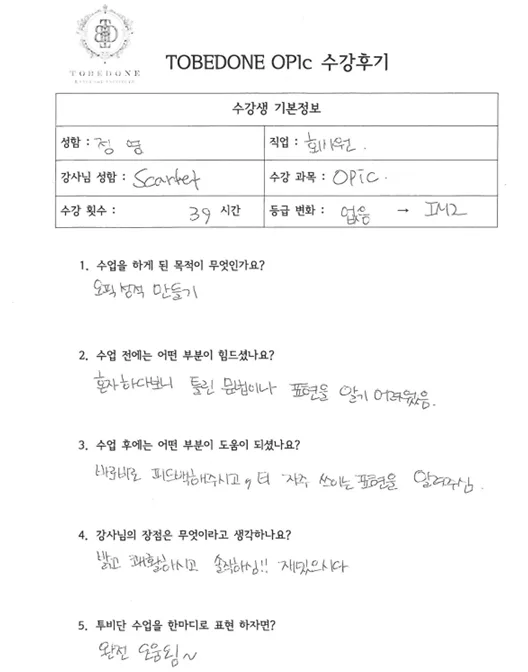 TOBEDONE
TOBEDONE OPIc 수강후기
수강생 기본정보
성함 : 정 영
직업 : 회사원.
강사님 성함 : Scarlet
수강 과목 : OPIC.
수강 횟수 : 39 시간
등급 변화 : 없음 → IM2
1. 수업을 하게 된 목적이 무엇인가요?
오픽성적 만들기
2. 수업 전에는 어떤 부분이 힘드셨나요?
혼자하다보니 틀린 문법이나 표현을 알기 어려웠음.
3. 수업 후에는 어떤 부분이 도움이 되셨나요?
바로바로 피드백해주시고, 더 자주 쓰이는 표현을 알려주심.
4. 강사님의 장점은 무엇이라고 생각하나요?
밝고 쾌활하시고 솔직하심!! 재밌으시다
5. 투비단 수업을 한마디로 표현 하자면?
완전 도움됨~